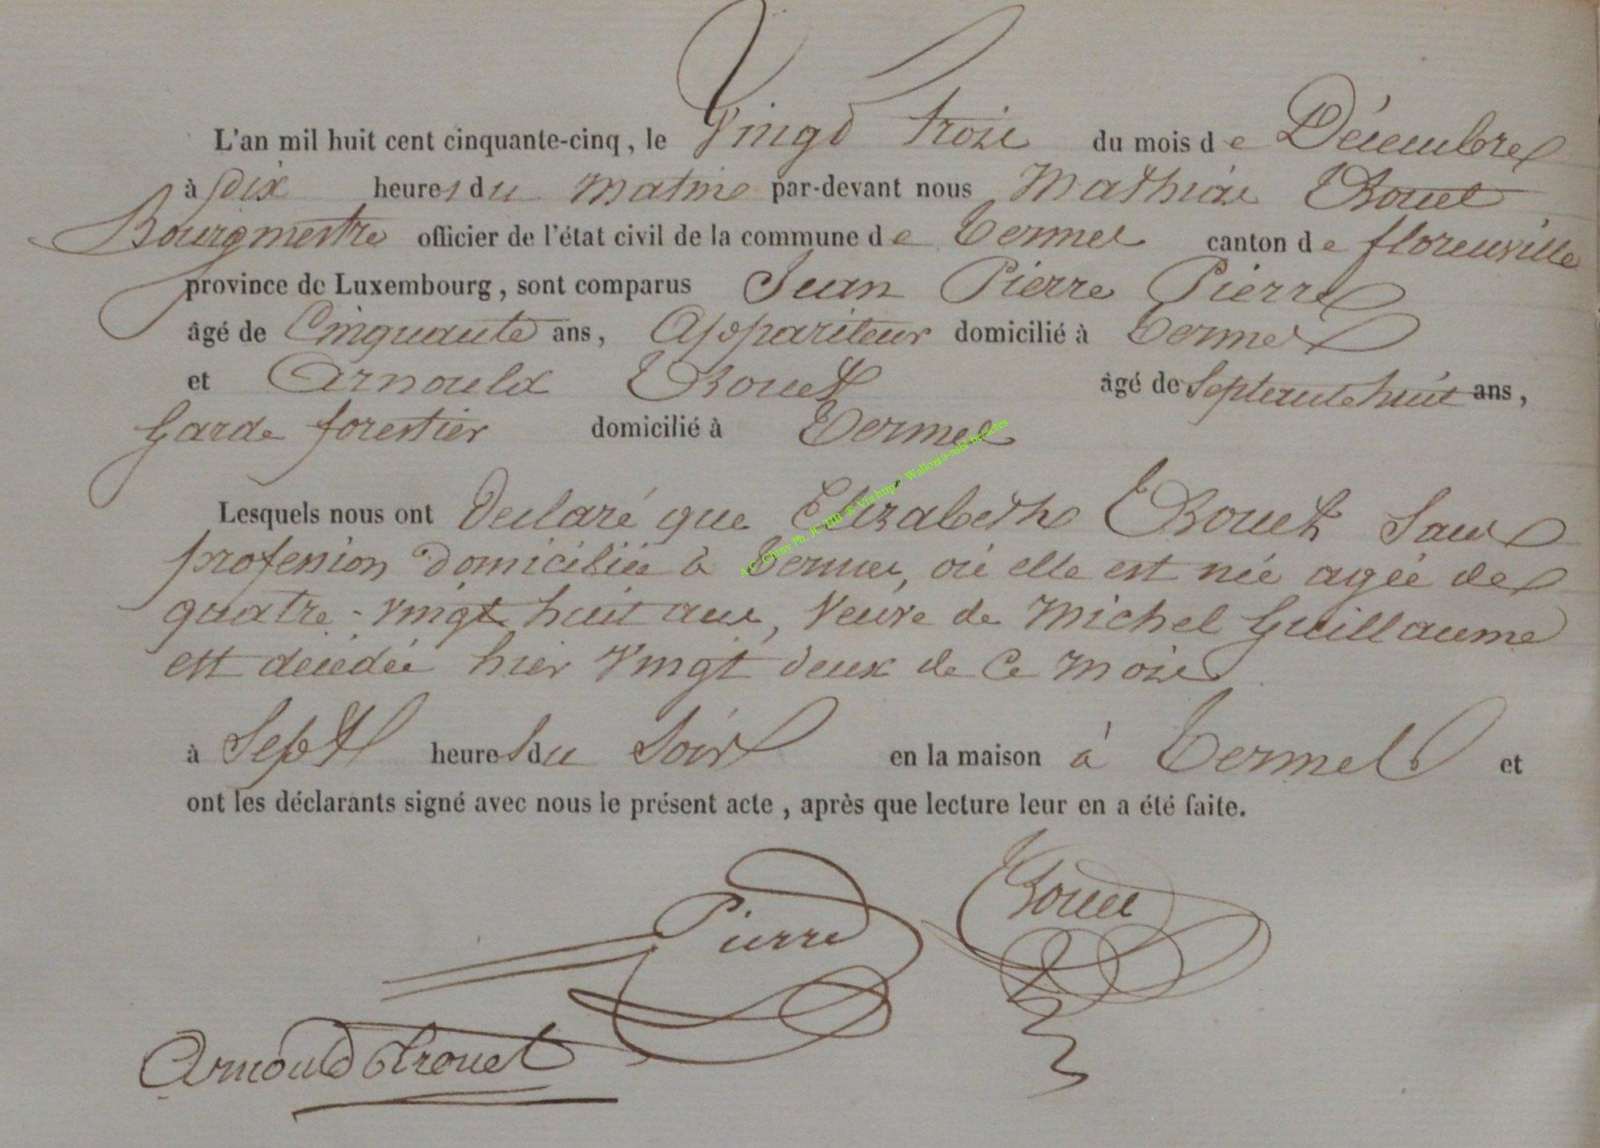 L'an mil huit cent cinquante-cinq, le Vingt trois du mois de Décembre
à Dix heures du matin par-devant nous Mathias
Bourgmestre officier de l'état civil de la commune de Termes canton de florenville
province de Luxembourg, sont comparus Jean Pierre Pierre
âgé de Cinquante ans, Appariteur domicilié à Termes
et Arnould âgé de Septante huit ans,
Garde forestier domicilié à Termes
Lesquels nous ont Déclaré que Elizabeth Sans
profession domiciliée à Termes, où elle est née agée de
quatre-vingt huit ans, Veuve de Michel Guillaume
est décédée hier Vingt deux de Ce mois
à Sept heures du Soir en la maison à Termes et
ont les déclarants signé avec nous le présent acte, après que lecture leur en a été faite.
Pierre
Arnould